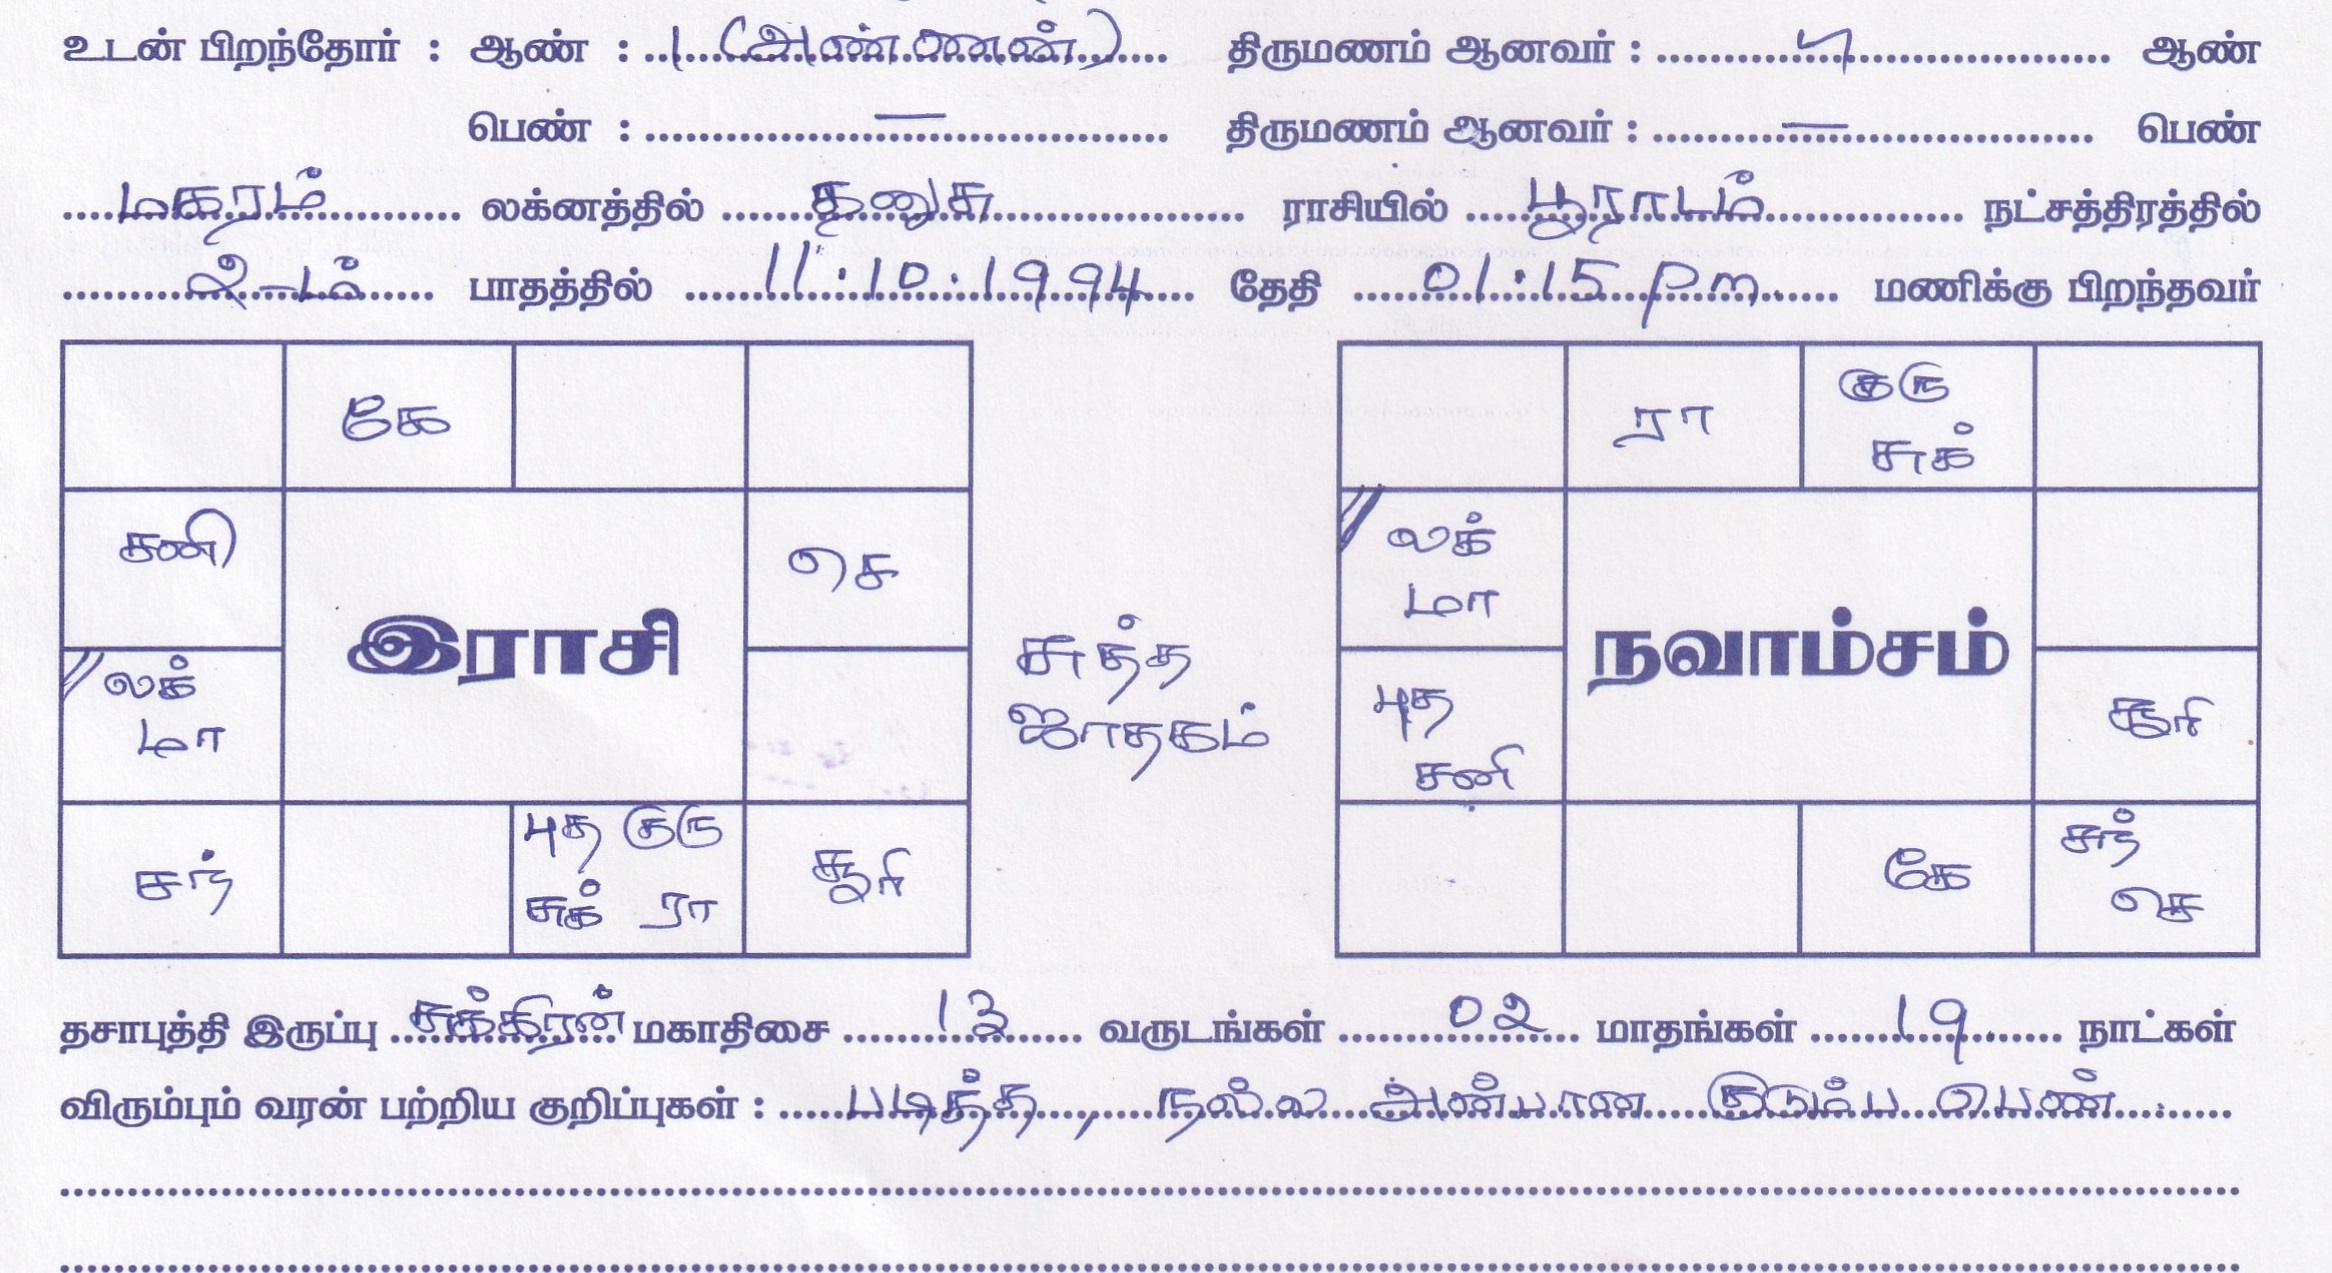 உடன் பிறந்தோர் : ஆண் : 1 (அண்ணன்) திருமணம் ஆனவர் : ஆண்
பெண் : — திருமணம் ஆனவர் : — பெண்
மகரம் லக்னத்தில் தனுசு ராசியில் பூராடம் நட்சத்திரத்தில்
2-ம் பாதத்தில் 11.10.1994 தேதி 01.15 pm. மணிக்கு பிறந்தவர்
கே
சனி
செ
இராசி
லக்
மா
சந்
புத குரு
சுக் ரா
சூரி
சுத்த
ஜாதகம்
ரா
குரு
சுக்
லக்
மா
நவாம்சம்
புத
சனி
சூரி
கே
சந்
செ
தசாபுத்தி இருப்பு சுக்கிரன் மகாதிசை 13 வருடங்கள் 02 மாதங்கள் 19 நாட்கள்
விரும்பும் வரன் பற்றிய குறிப்புகள் : படித்த, நல்ல அன்பான குடும்ப பெண்